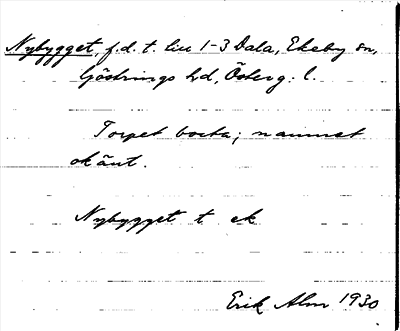 Nybygget, f.d. t. lie 1-3 Dala, Ekeby sn,
Göstrings hd, Österg. l.
Torpet borta; namnet
okänt.
Nybygget t ek
Erik Alm 1930